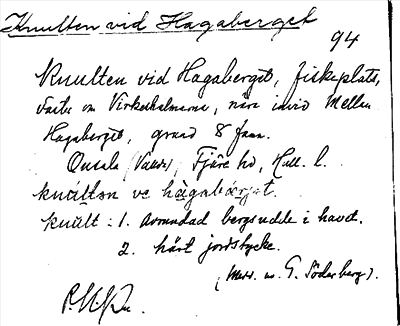 Knulten vid Hagaberget
94
Knulten vid Hagaberget, fiskeplats,
om Virkeholmarna, nära invid Mellan
Hagaberget, grund 8 famn.
Onsala (Valld), Fjäre hd, Hall. l.
knulton ve hagabärjat.
knult : 1. Avrundad bergsudde i havet.
2. hårt jordstycke.
(Medd. av G. Söderberg).